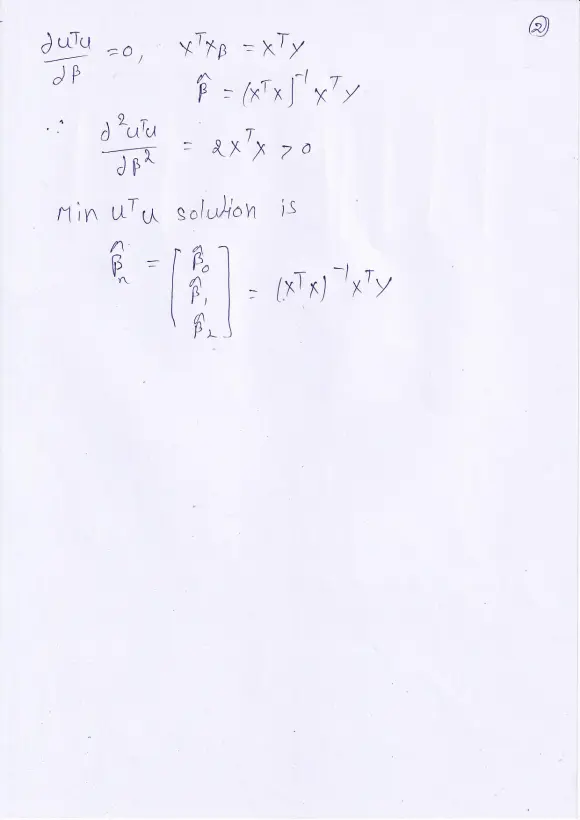 ②
∂uᵀu/∂β = 0, XᵀXβ = Xᵀy
β̂ = (XᵀX)⁻¹Xᵀy
∵ ∂²uᵀu/∂β² = 2XᵀX > 0
Min uᵀu solution is
β̂ₙ = [β̂₀ β̂₁ β̂₂] = (XᵀX)⁻¹Xᵀy